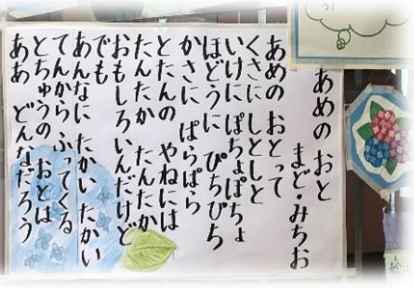 あめの おと
まど・みちお
あめの おとって
くさに しとしと
いけに ぽちょぽちょ
ほどうに ぴちぴち
かさに ぱらぱら
とたんの やねには
たんたか たんたか
おもしろいんだけど
でも
あんなに たかい たかい
てんから ふってくる
とちゅうの おとは
ああ どんなだろう